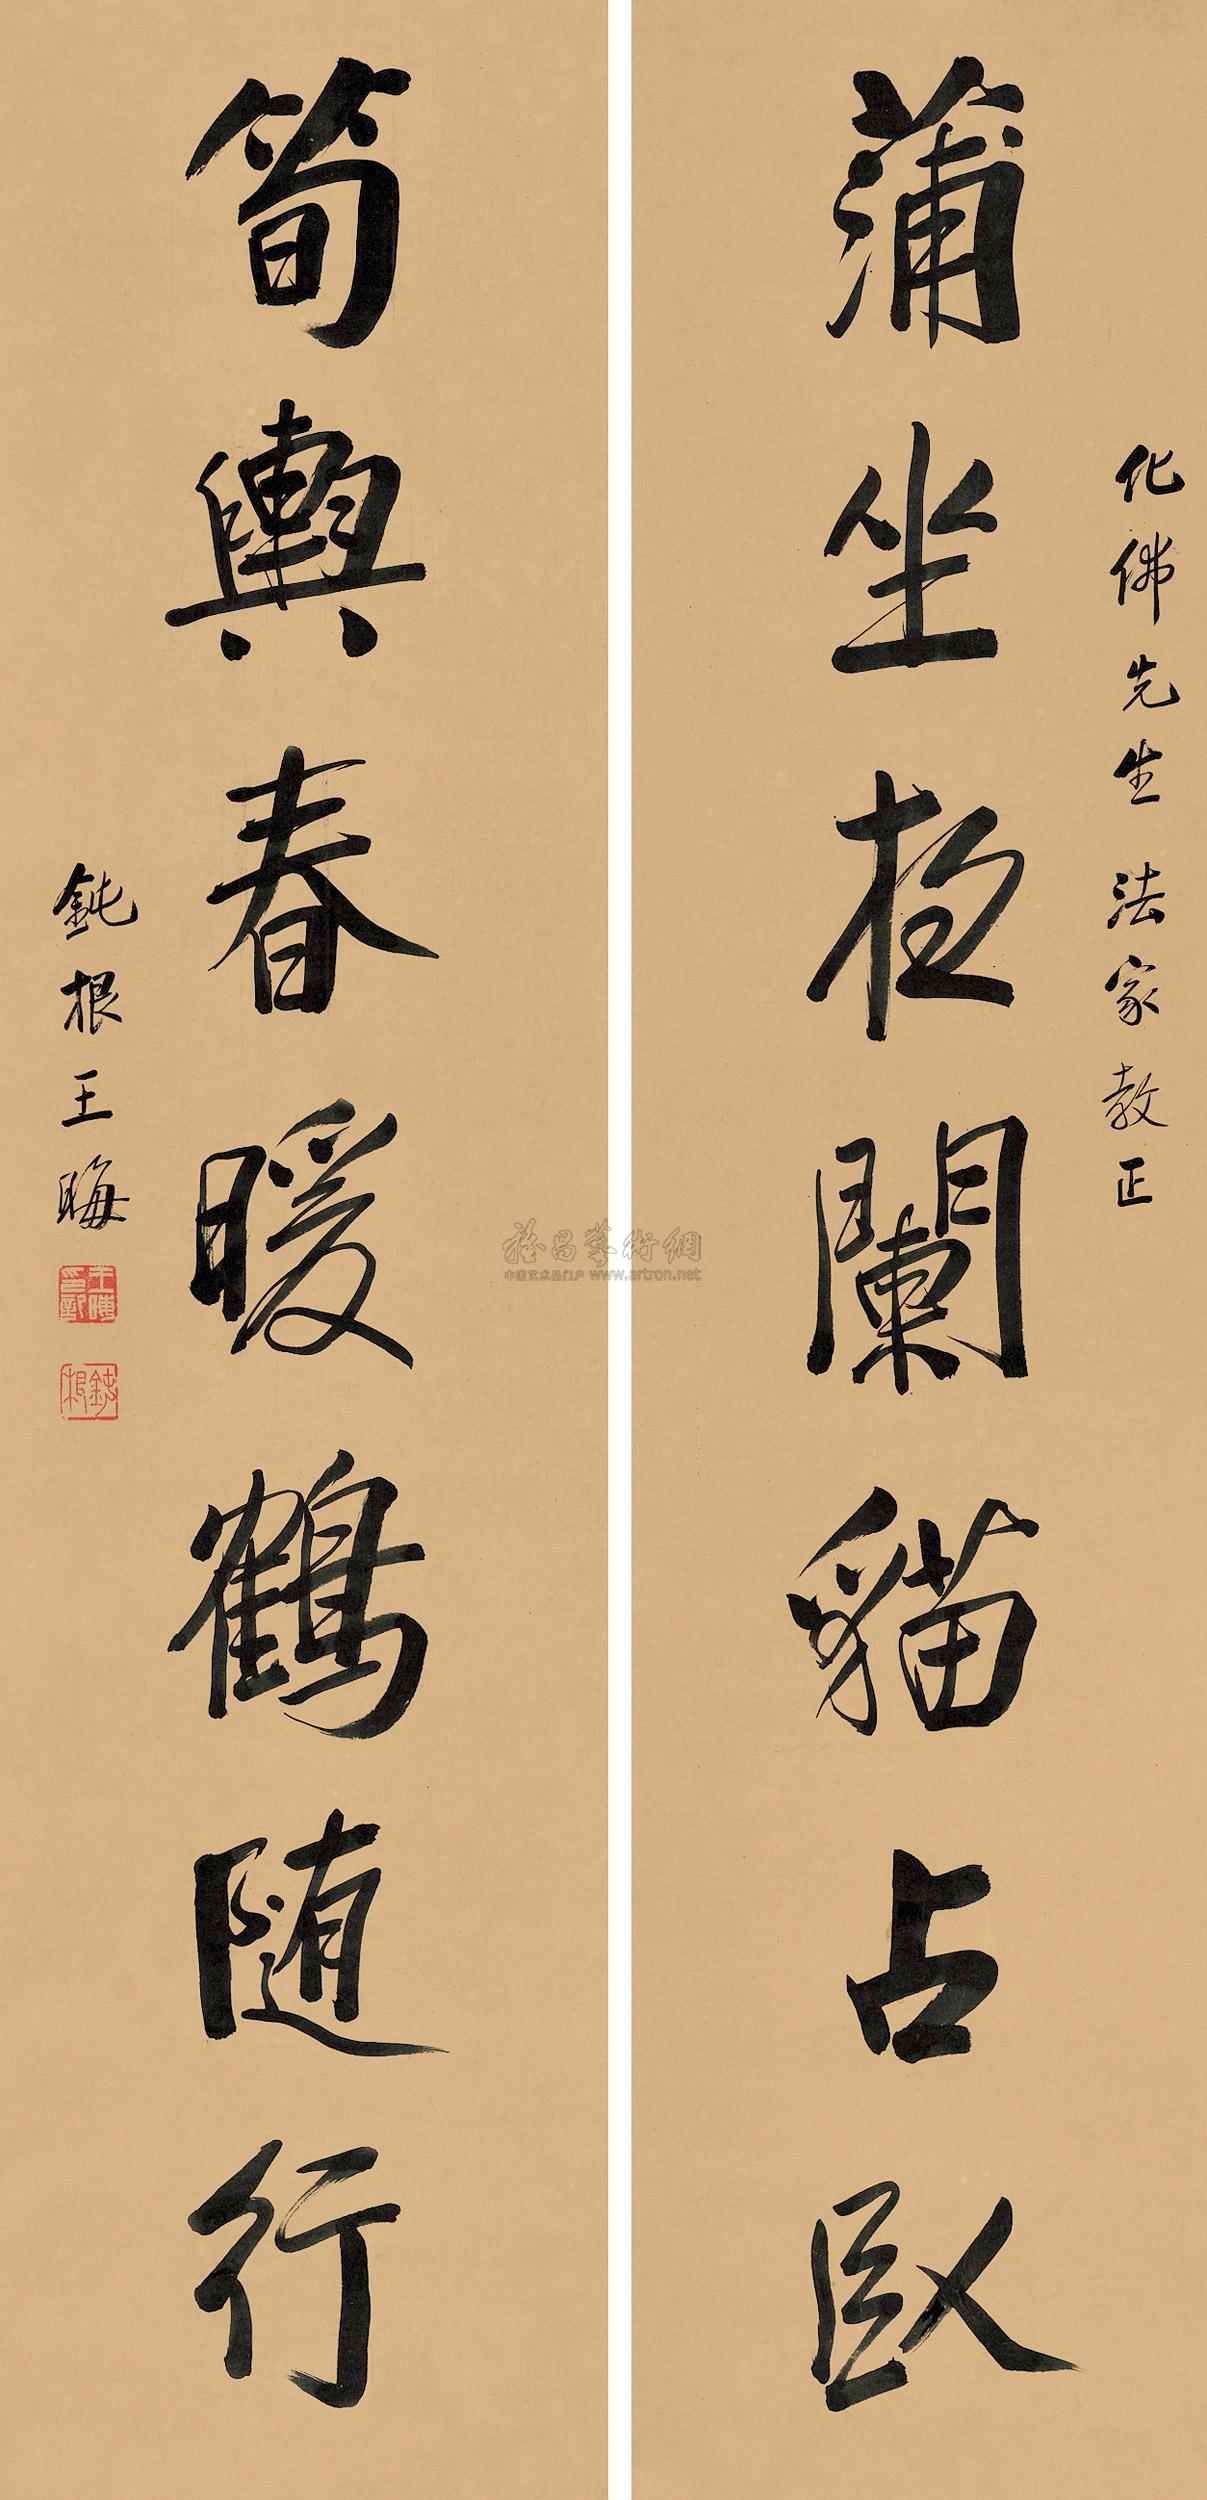 蒲坐夜闌貓占臥
化佛先生法家教正
筍輿春暖鶴隨行
鈍根王晦
鈍根
雅昌藝術網
中国艺术品门户 www.artron.net